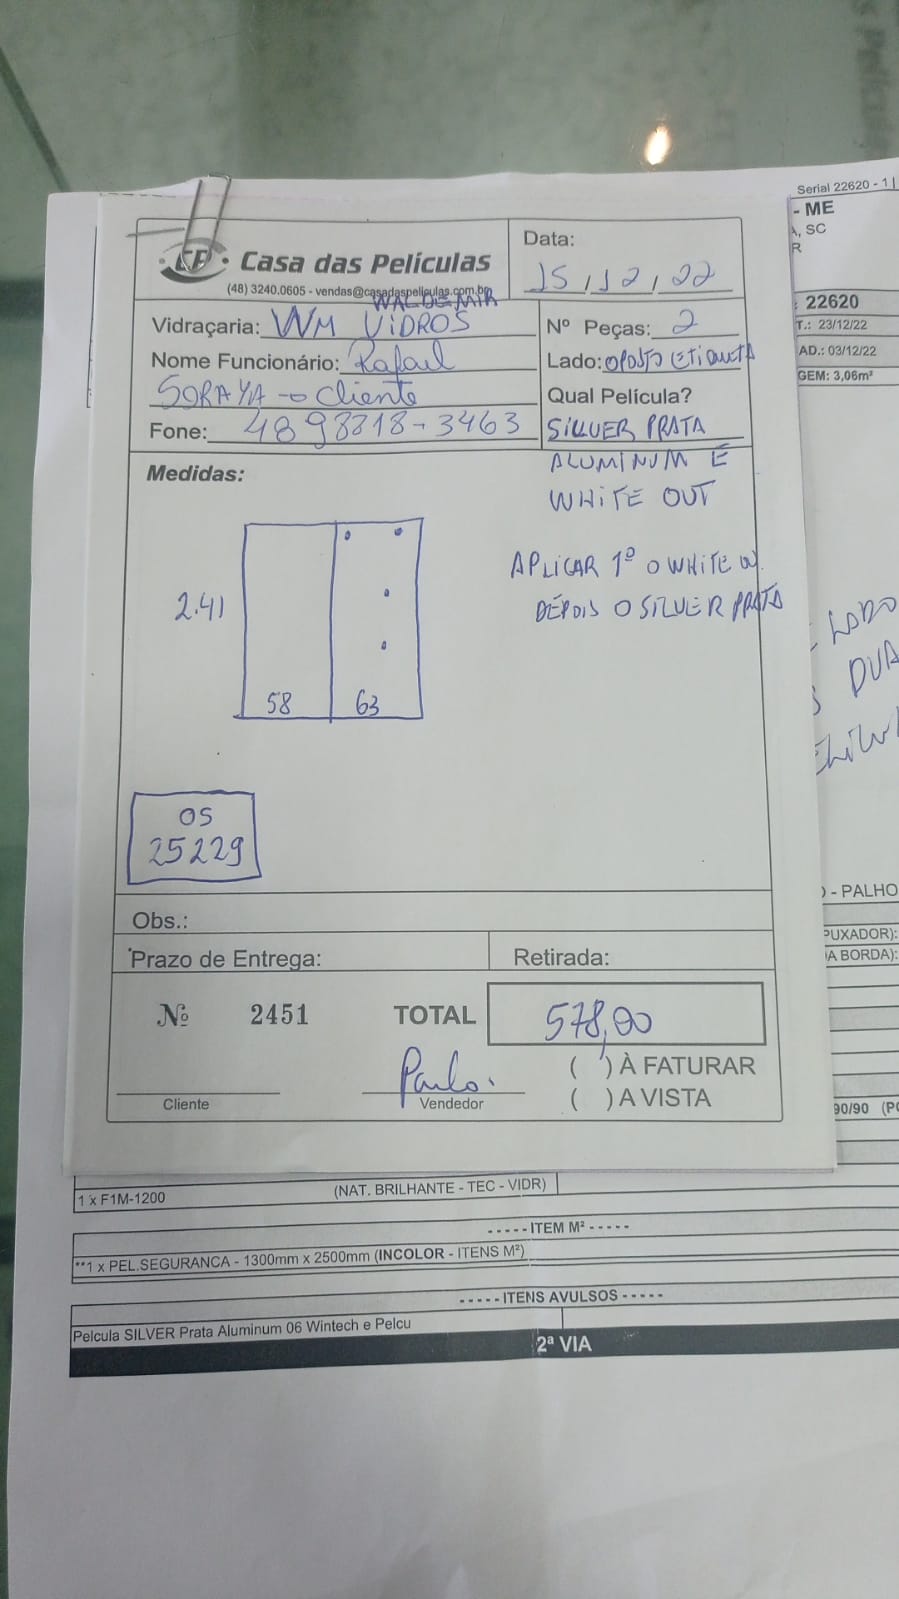 Serial 22620 - 1 |
- ME
A, SC
R
CP Casa das Películas
(48) 3240.0605 - vendas@casadaspeliculas.com.br
Data:
15/12/22
: 22620
T.: 23/12/22
AD.: 03/12/22
GEM: 3,06m²
WALDEMIR
Vidraçaria: WM VIDROS
Nº Peças: 2
Nome Funcionário: Rafael
Lado: OPOSTO ETIQUETA
SORAYA -o Cliente
Qual Película?
Fone: 48 98818-3463
SILVER PRATA
ALUMINUM E
WHITE OUT
Medidas:
APLICAR 1º O WHITE OU
DEPOIS O SILVER PRATA
2.41
58 63
LADO
DUA
OS
25229
Obs.:
Prazo de Entrega:
Retirada:
Nº 2451
TOTAL 578,00
Paulo.
( ) À FATURAR
( ) A VISTA
Cliente
Vendedor
O - PALHO
PUXADOR):
A BORDA):
90/90 (PO
1 x F1M-1200
(NAT. BRILHANTE - TEC - VIDR)
- - - - - ITEM M² - - - - -
**1 x PEL.SEGURANCA - 1300mm x 2500mm (INCOLOR - ITENS M²)
- - - - - ITENS AVULSOS - - - - -
Pelcula SILVER Prata Aluminum 06 Wintech e Pelcu
2ª VIA